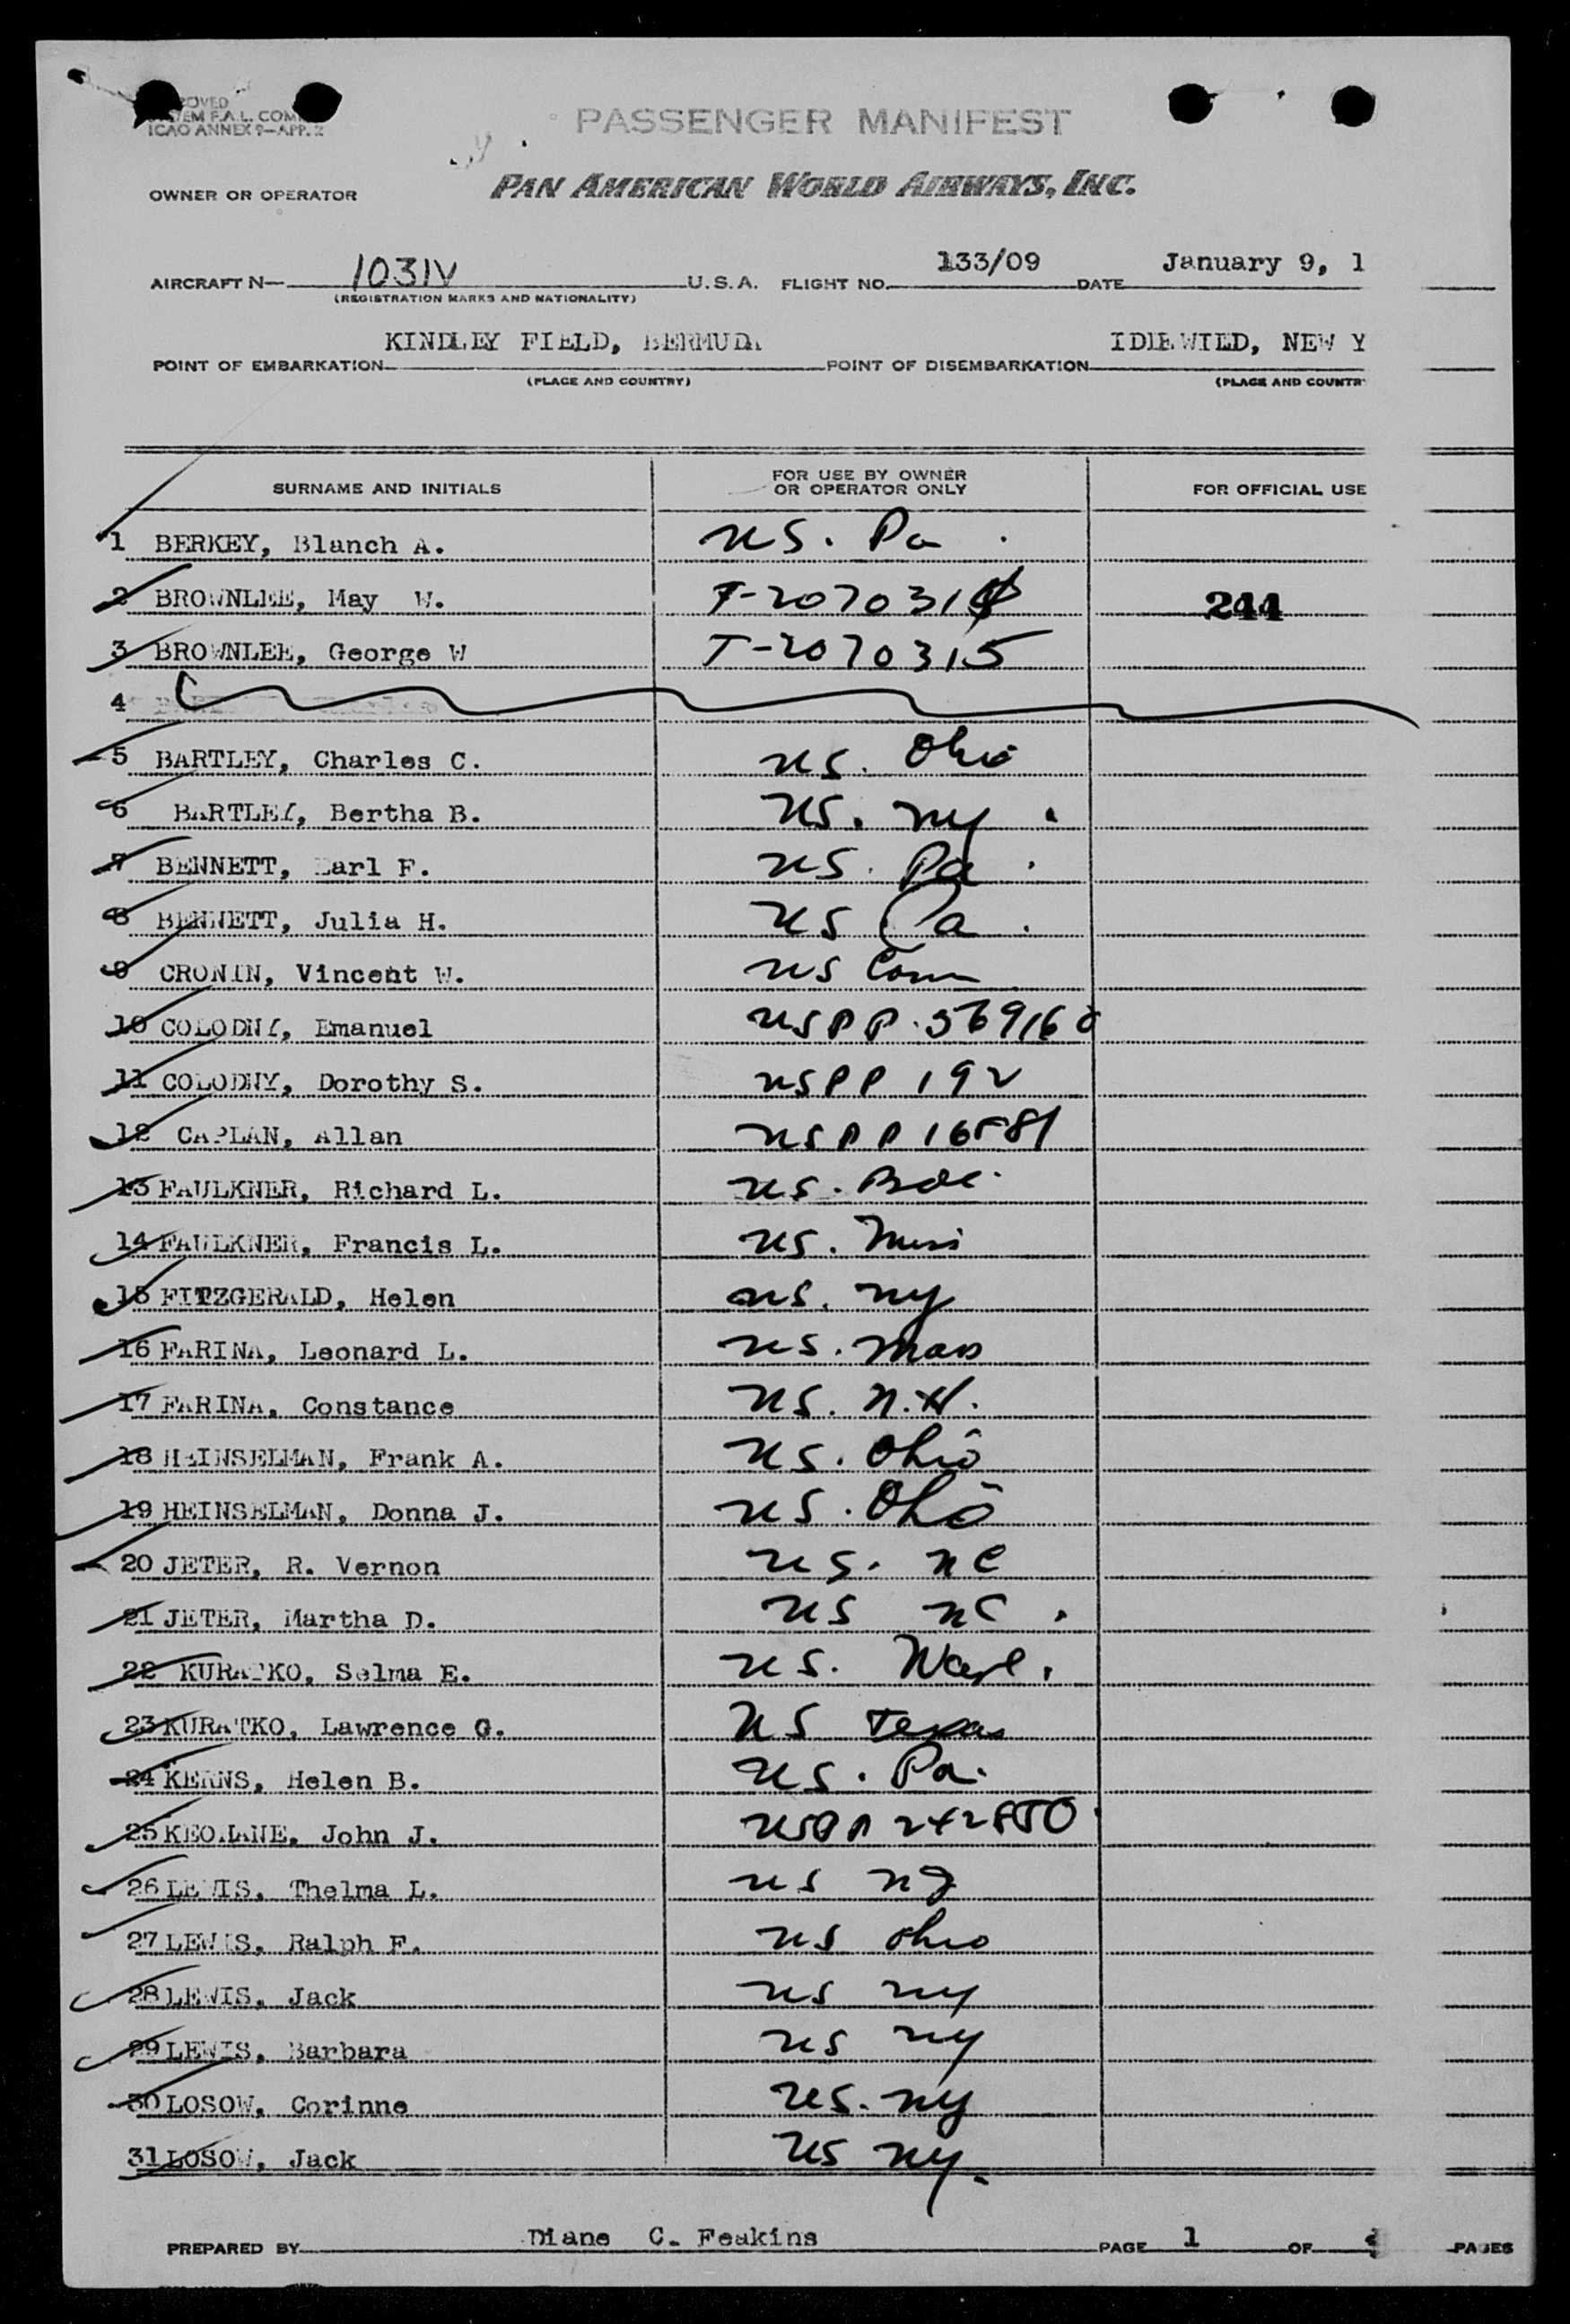 ICAO ANNEX 9—APP. 2
PASSENGER MANIFEST
OWNER OR OPERATOR PAN AMERICAN WORLD AIRWAYS, INC.
AIRCRAFT N— 1031V U.S.A. FLIGHT NO. 133/09 DATE January 9, 1
(REGISTRATION MARKS AND NATIONALITY)
KINDLEY FIELD, BERMUDA IDLEWILD, NEW Y
POINT OF EMBARKATION POINT OF DISEMBARKATION
(PLACE AND COUNTRY) (PLACE AND COUNTR
SURNAME AND INITIALS FOR USE BY OWNER OR OPERATOR ONLY FOR OFFICIAL USE
1 BERKEY, Blanch A. US. Pa.
2 BROWNLEE, May W. T-2070314 244
3 BROWNLEE, George W T-2070315
4
5 BARTLEY, Charles C. US. Ohio
6 BARTLEY, Bertha B. US. NY.
7 BENNETT, Earl F. US. Pa.
8 BENNETT, Julia H. US Pa.
9 CRONIN, Vincent W. US Conn
10 COLODNY, Emanuel USPP.
11 COLODNY, Dorothy S. USPP 192
12 CAPLAN, Allan USPP 16581
13 FAULKNER, Richard L. US.
14 FAULKNER, Francis L. US. Miss
15 FITZGERALD, Helen US. NY
16 FARINA, Leonard L. US. Mass
17 FARINA, Constance US. N.H.
18 HEINSELMAN, Frank A. US. Ohio
19 HEINSELMAN, Donna J. US. Ohio
20 JETER, R. Vernon US. NC
21 JETER, Martha D. US NC.
22 KURATKO, Selma E. US. Wash.
23 KURATKO, Lawrence G. US Texas
24 KERNS, Helen B. US. Pa.
25 KEOHANE, John J. USPP
26 LEWIS, Thelma L. US NJ
27 LEWIS, Ralph F. US Ohio
28 LEWIS, Jack US NY
29 LEWIS, Barbara US NY
30 LOSOW, Corinne US. NY
31 LOSOW, Jack US NY.
PREPARED BY Diane C. Feakins PAGE 1 OF PAGES